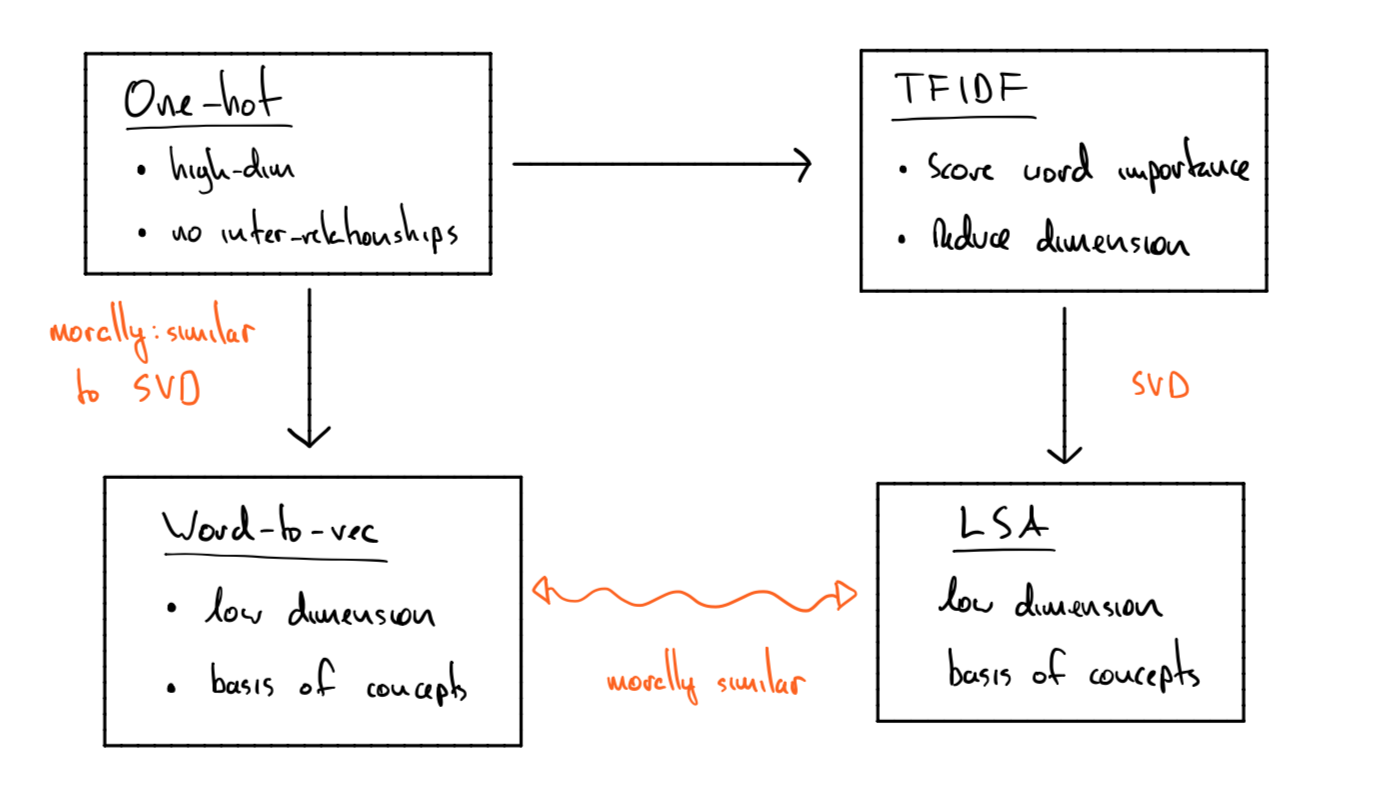 One-hot
• high-dim
• no inter-relationships
TFIDF
• Score word importance
• Reduce dimension
morally: similar
to SVD
SVD
Word-to-vec
• low dimension
• basis of concepts
LSA
low dimension
basis of concepts
morally similar